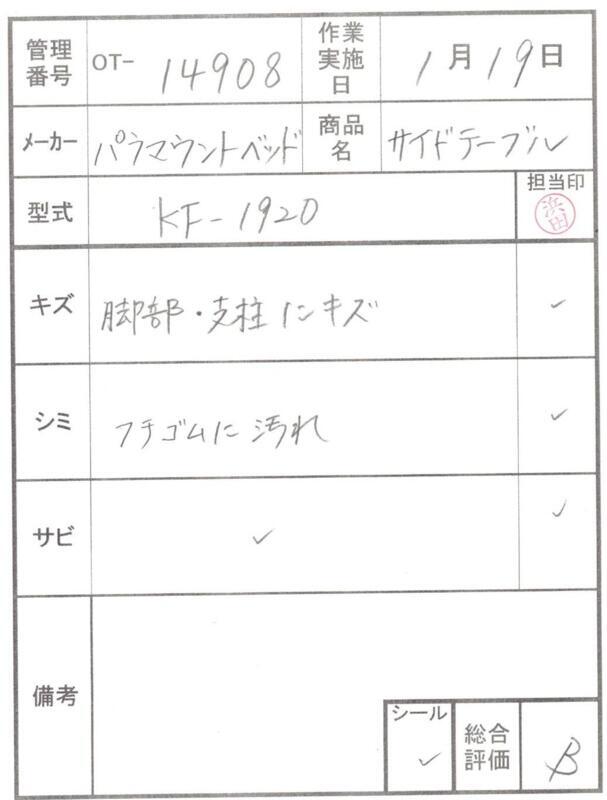 管理番号 OT- 14908 作業実施日 1月19日
メーカー パラマウントベッド 商品名 サイドテーブル
型式 KF-1920 担当印 浜田
キズ 脚部・支柱にキズ ✓
シミ フチゴムに汚れ ✓
サビ ✓ ✓
備考
シール ✓ 総合評価 B